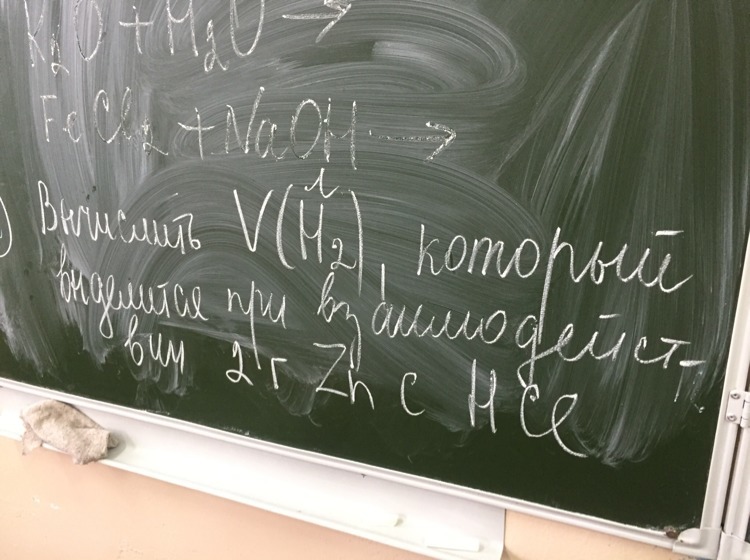 K₂O + H₂O →
FeCl₂ + NaOH →
) Вычислить V(H₂), который
выделится при взаимодейст-
вии 2 г Zn с HCl